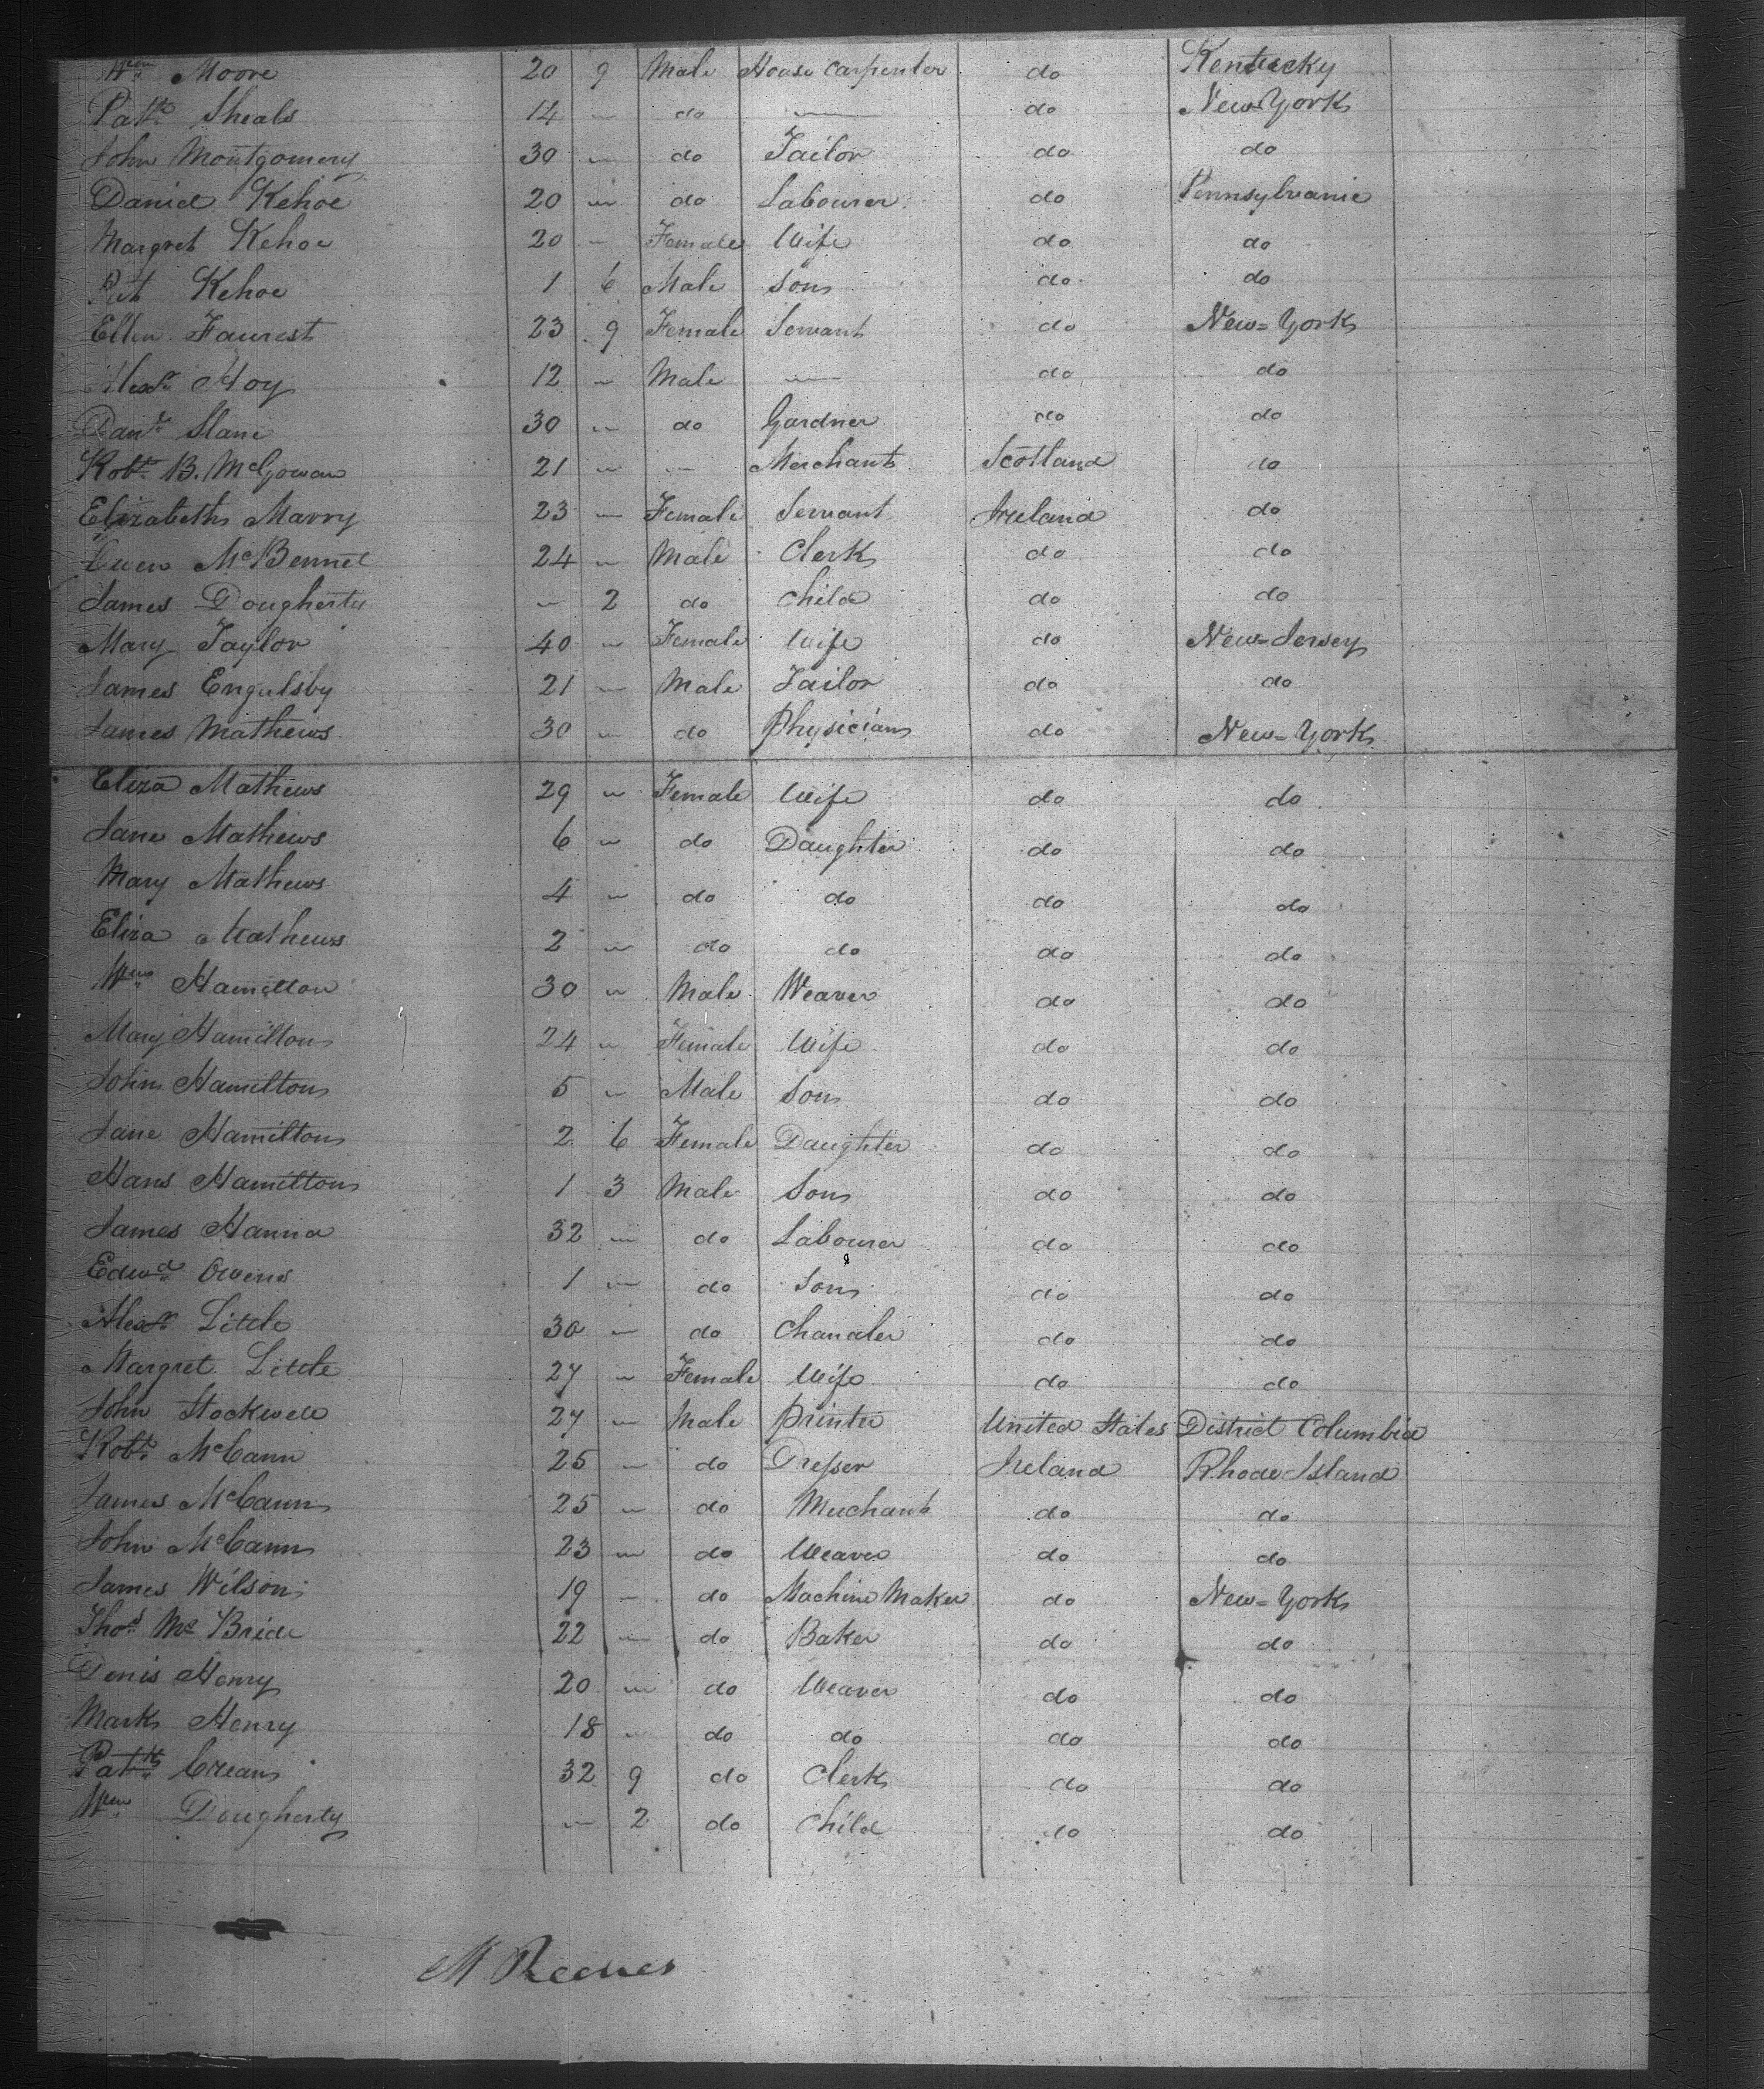 Wm Moore 20 9 Male House Carpenter do Kentucky
Patk Sheals 14 " do — do New York
John Montgomery 30 " do Tailor do do
Daniel Kehoe 20 " do Labourer do Pennsylvania
Margret Kehoe 20 " Female Wife do do
Pat Kehoe 1 6 Male Son do do
Ellen Faurest 23 9 Female Servant do New-York
Alexr Hoy 12 " Male — do do
Danl Slane 30 " do Gardner do do
Robt B. McGowan 21 " " Merchant Scotland do
Elizabeth Marry 23 " Female Servant Ireland do
Owen McBennet 24 " Male Clerk do do
James Dougherty " 2 do Child do do
Mary Taylor 40 " Female Wife do New-Jersey
James Engulsby 21 " Male Tailor do do
James Mathews 30 " do Physician do New-York
Eliza Mathews 29 " Female Wife do do
Jane Mathews 6 " do Daughter do do
Mary Mathews 4 " do do do do
Eliza Mathews 2 " do do do do
Wm Hamilton 30 " Male Weaver do do
Mary Hamilton 24 " Female Wife do do
John Hamilton 5 " Male Son do do
Jane Hamilton 2 6 Female Daughter do do
Hans Hamilton 1 3 Male Son do do
James Hanna 32 " do Labourer do do
Edwd Owens 1 " do Son do do
Alexr Little 30 " do Chandler do do
Margret Little 27 " Female Wife do do
John Stockwell 27 " Male Printer United States District Columbia
Robt McCann 25 " do Dresser Ireland Rhode Island
James McCann 25 " do Merchant do do
John McCann 23 " do Weaver do do
James Wilson 19 " do Machine Maker do New-York
Thos McBride 22 " do Baker do do
Denis Henry 20 " do Weaver do do
Mark Henry 18 " do do do do
Patk Crean 32 9 do Clerk do do
Wm Dougherty " 2 do Child do do
M Reeves